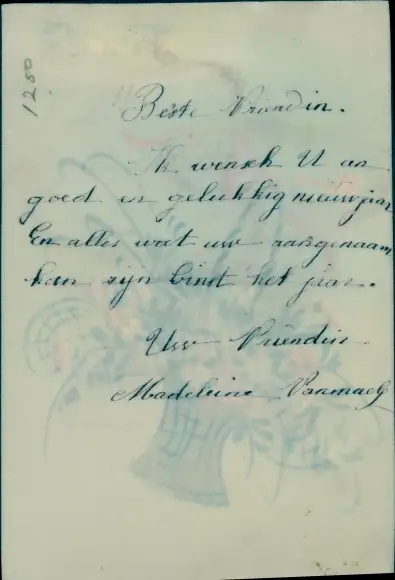 1250
Beste Vriendin.
Ik wensch U een
goed en gelukkig nieuwjaar
En alles wat uw aangenaam
kan zijn binst het jaar.
Uw Vriendin
Madeleine Vanmaele